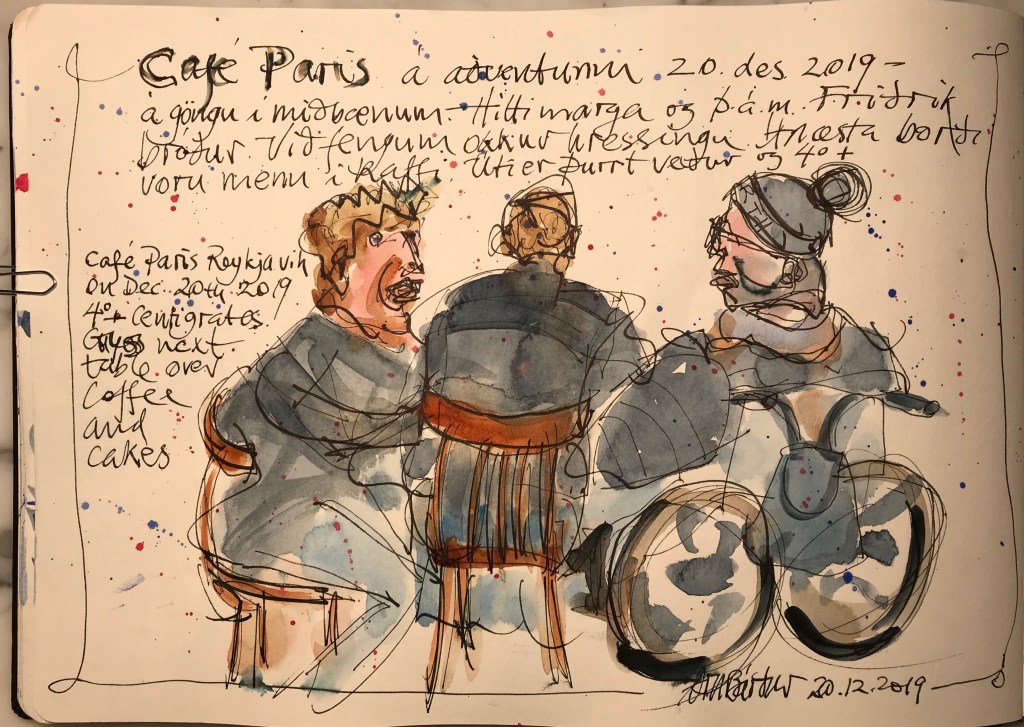 Café Paris á aðventunni 20. des 2019 -
á göngu í miðbænum. Hitti marga og þ.á.m. Friðrik
bróður. Við fengum okkur hressingu. Á næsta borði
voru menn í kaffi. Úti er þurrt veður og 4°+
Café Paris Reykjavik
On Dec. 20th 2019
4°+ Centigrates
Guys next
table over
Coffee
and
cakes
20.12.2019